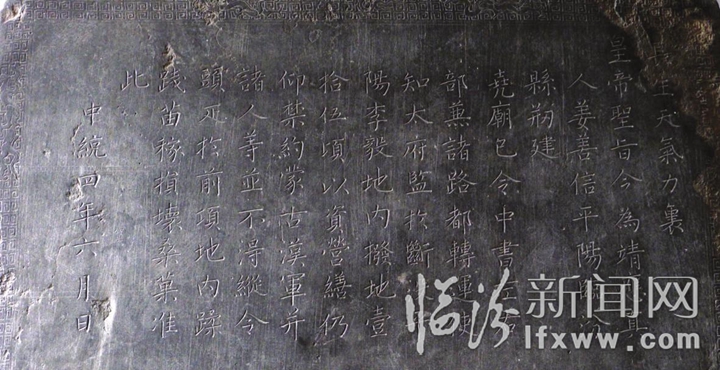 長生天氣力裏
皇帝聖旨今為靖應真
人姜善信平陽臨汾
縣刱建
堯廟已令中書左右
部兼諸路都轉運使
知太府監扵斷
陽李毅地内撥地壹
拾伍頃以資營繕仍
仰禁約蒙古漢軍并
諸人等並不得縱令
頭疋扵前項地内蹂
踐苗稼損壞桑菓准
此
中統四年六月日
临汾新闻网
lfxww.com